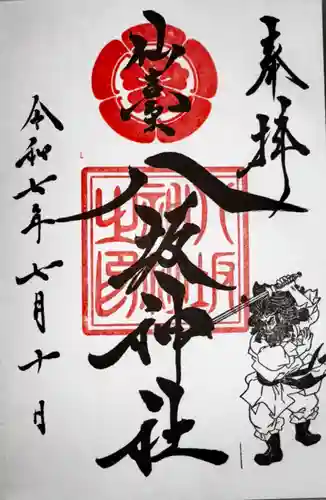 奉拝
仙臺
八坂神社
八坂神社之印
令和七年七月十日